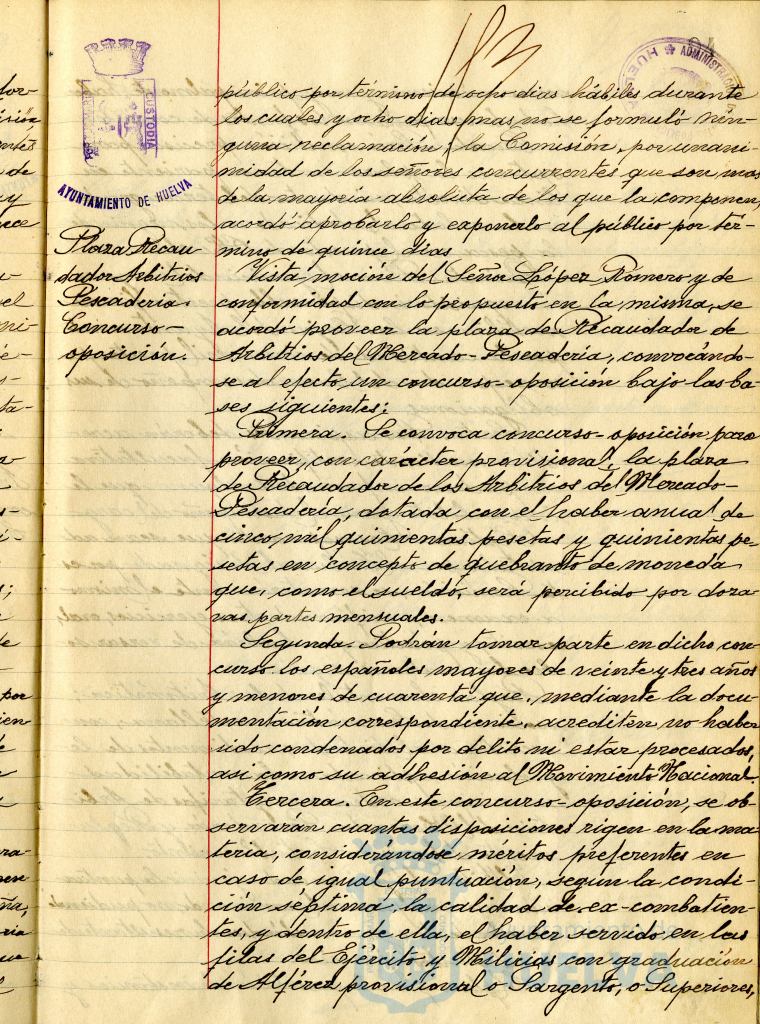 183
ADMINISTRACIÓN
HUELVA
CUSTODIA
AYUNTAMIENTO DE HUELVA
público por término de ocho dias hábiles durante
los cuales y ocho dias mas no se formuló nin-
guna reclamación, la Comisión, por unani-
midad de los señores concurrentes que son mas
de la mayoria absoluta de los que la componen,
acordó aprobarlo y exponerlo al público por tér-
mino de quince dias
Plaza Recau-
dador Arbitrios
Pescaderia.
Concurso-
oposición.
Vista moción del Señor López Romero y de
conformidad con lo propuesto en la misma, se
acordó proveer la plaza de Recaudador de
Arbitrios del Mercado-Pescadería, convocándo-
se al efecto un concurso-oposición bajo las ba-
ses siguientes:
Primera. Se convoca concurso-oposición para
proveer, con carácter provisional, la plaza
de Recaudador de los Arbitrios del Mercado-
Pescadería, dotada con el haber anual de
cinco mil quinientas pesetas y quinientas pe-
setas en concepto de quebranto de moneda
que, como el sueldo, será percibido por doza-
vas partes mensuales.
Segunda. Podrán tomar parte en dicho con-
curso los españoles mayores de veinte y tres años
y menores de cuarenta que, mediante la docu-
mentación correspondiente, acrediten no haber
sido condenados por delito ni estar procesados,
asi como su adhesión al Movimiento Nacional.
Tercera. En este concurso-oposición, se ob-
servarán cuantas disposiciones rigen en la ma-
teria, considerándose méritos preferentes en
caso de igual puntuación, según la condi-
ción séptima, la calidad de ex-combatien-
tes, y dentro de ella, el haber servido en las
filas del Ejército y Milicias con graduación
de Alférez provisional o Sargento, o Superiores,
HUELVA